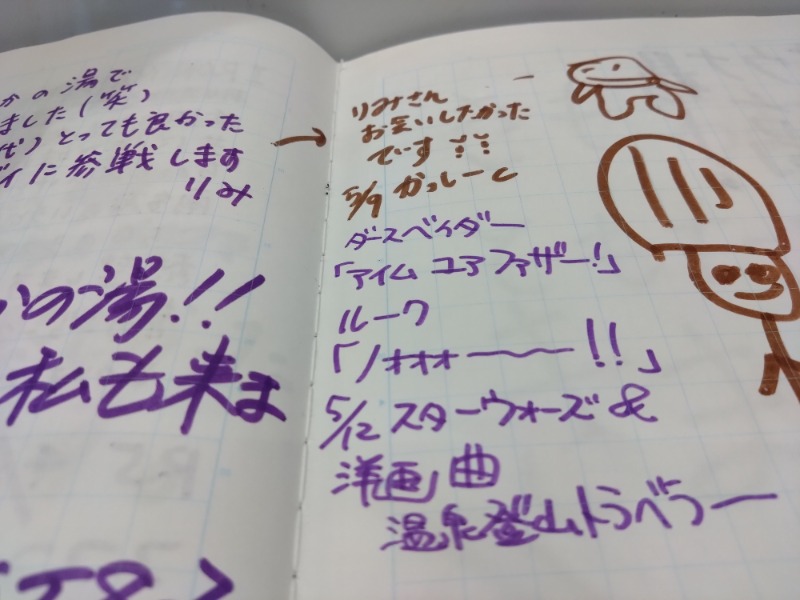 かの湯で
ました(笑)
代)とっても良かった
イに参戦します
りみ
かの湯!!
私も来ま
りみさん
お会いしたかった
です!!
5/9 かっしーと
ダースベイダー
「アイム ユア ファザー!」
ルーク
「ノォォォーーー!!」
5/12 スターウォーズ&
洋画 曲
温泉登山トラベラー